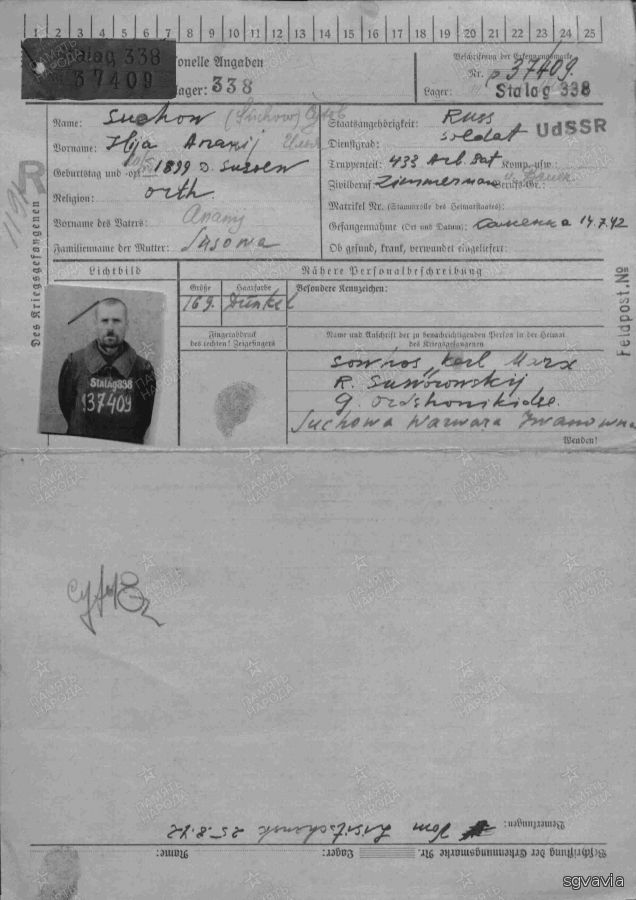 1 2 3 4 5 6 7 8 9 10 11 12 13 14 15 16 17 18 19 20 21 22 23 24 25
Stalag 338
37409
Personelle Angaben
Lager: 338
Beschriftung der Erkennungsmarke
Nr. 37409.
Lager: Stalag 338
Des Kriegsgefangenen
R
Name: Suchow (Suchow)
Vorname: Ilja Ananij
Geburtstag und -ort: 1899
Religion: orth.
Vorname des Vaters: Ananij
Familienname der Mutter: Susowa
Staatsangehörigkeit: Russ
UdSSR
Dienstgrad: Soldat
Truppenteil: 433 Arb. Bat Komp. usw.:
Zivilberuf: Zimmerman Berufs-Gr.:
Matrikel Nr. (Stammrolle des Heimatstaates):
Gefangennahme (Ort und Datum): 14.7.42
Ob gesund, krank, verwundet eingeliefert:
Lichtbild
Nähere Personalbeschreibung
Größe
Haarfarbe
Besondere Kennzeichen:
169.
Dunkel
Feldpost.№
Stalag 338
137409
Fingerabdruck
des rechten! Zeigefingers
Name und Anschrift der zu benachrichtigenden Person in der Heimat
des Kriegsgefangenen
Sowhos „Karl Marx
R. Suworowskij
G. Ordshonikidse.
Suchowa Warwara Iwanowna
Wenden!
Bemerkungen:
Vom Lisitschansk 25.8.42
Beschriftung der Erkennungsmarke Nr.
Lager:
Name:
ПАМЯТЬ НАРОДА
sgvavia